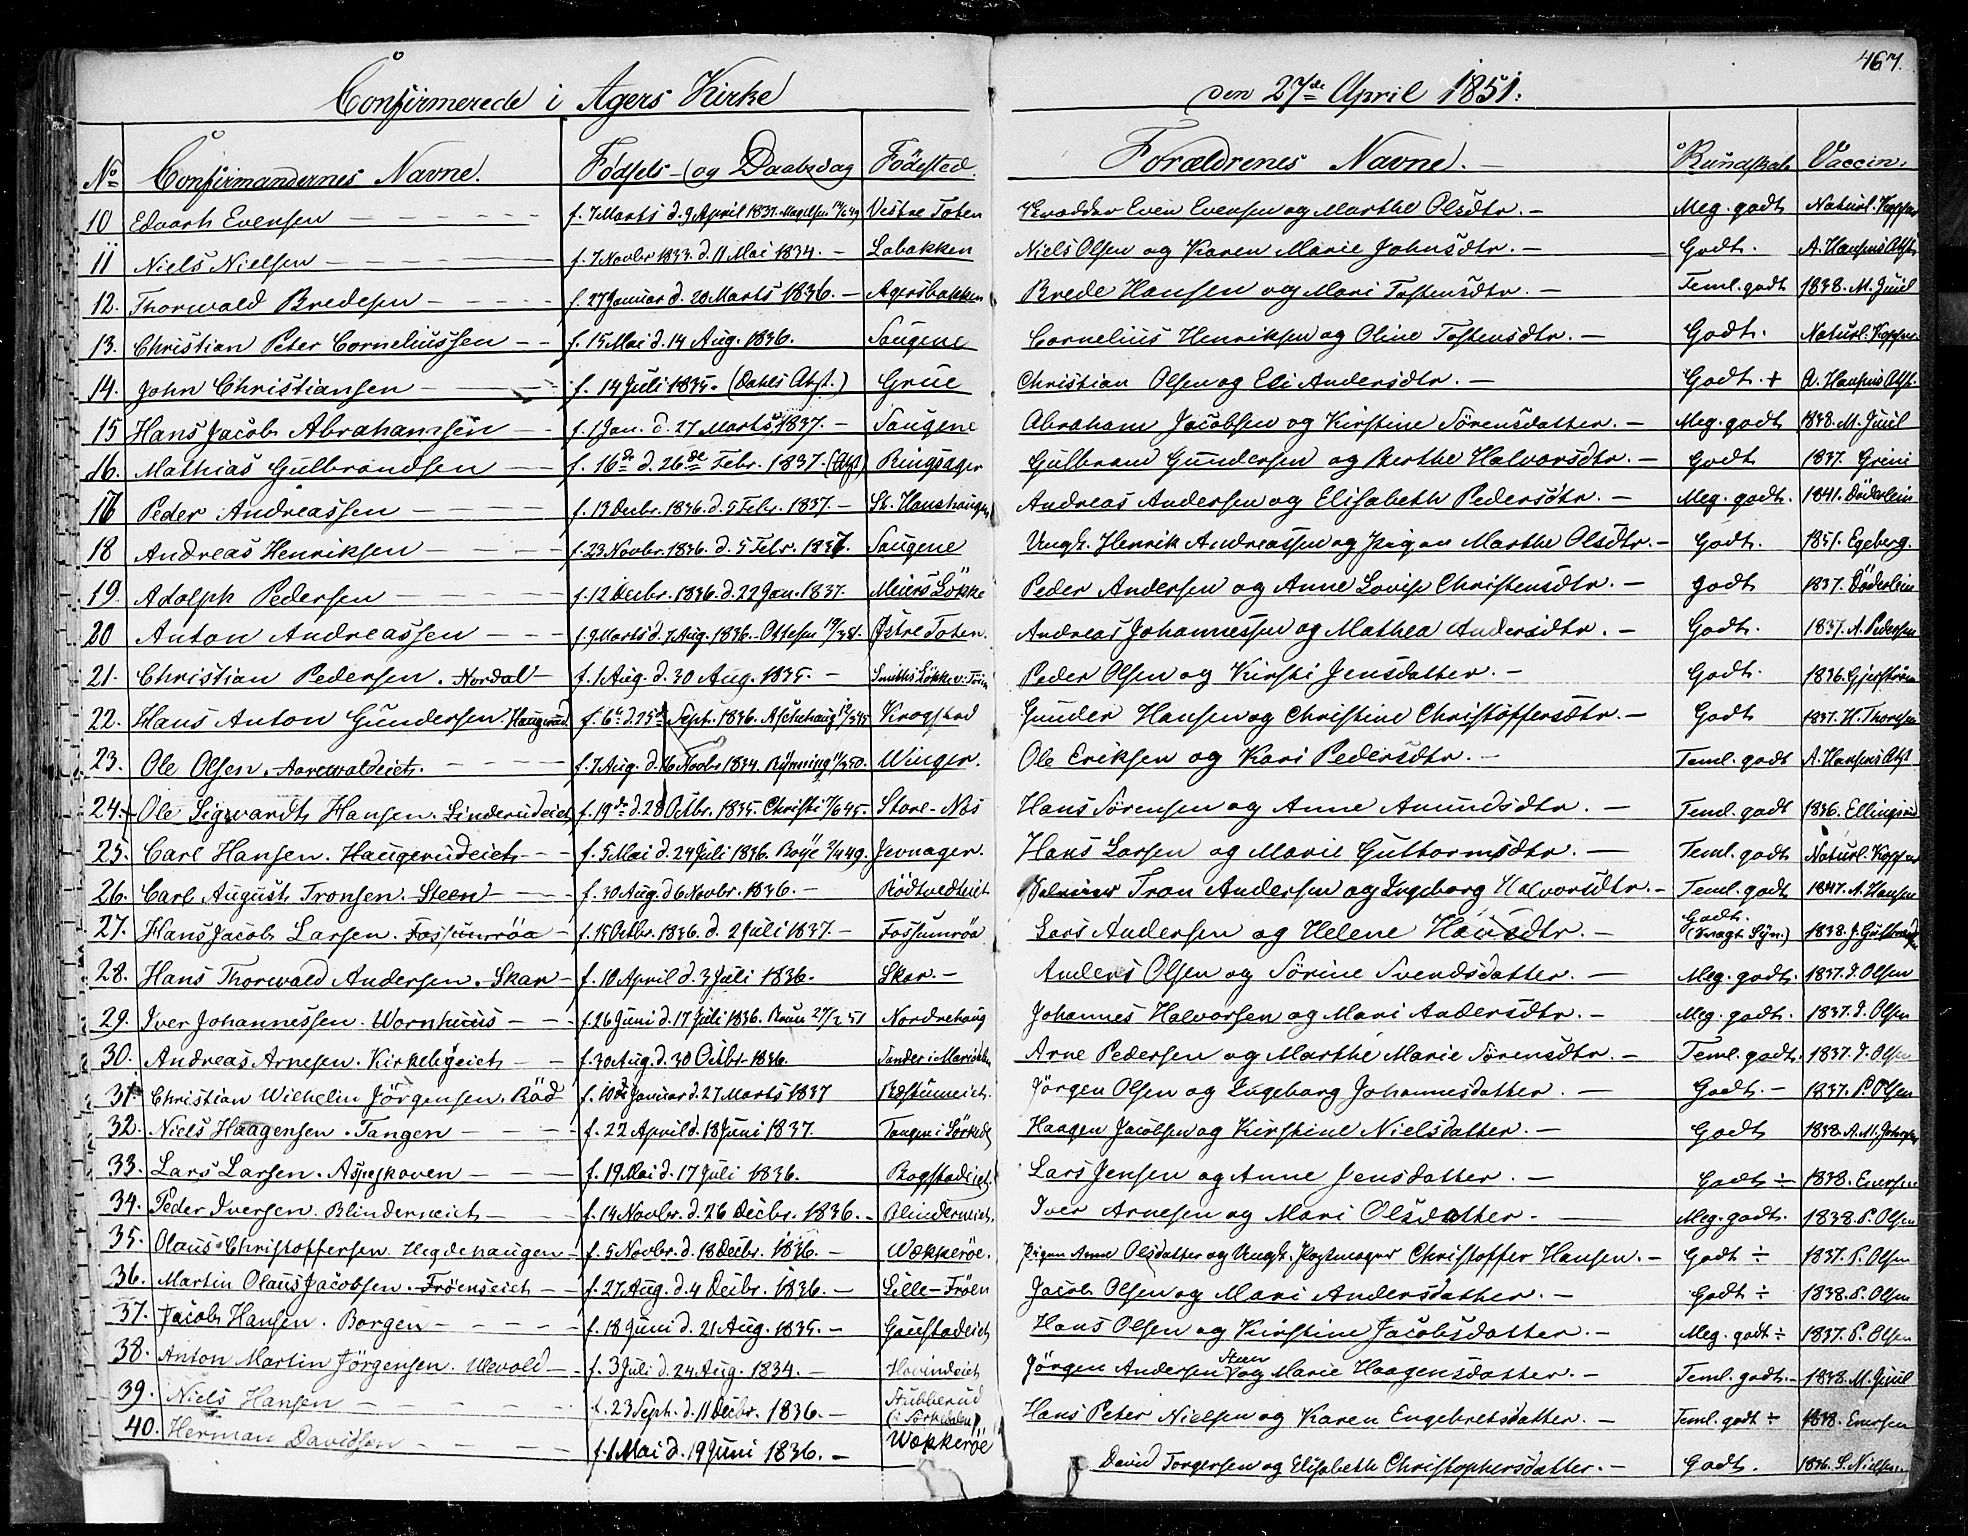 467.
Confirmerede i Agers Kirke den 27de April 1851.
No Confirmandernes Navne. Födsels- og Daabsdag Födested. Forældrenes Navne. Kundskab Vaccin.
10 Edvart Evensen f. 7 Marts d. 9 April 1837. Vestre Toten Even Evensen og Marthe Olsdtr. Meg. godt Naturl. Kopper
11 Niels Nielsen f. 7 Novbr 1833. d. 11 Mai 1834. Labakken Niels Olsen og Karen Marie Johnsdtr. Godt. A. Hansens Atst.
12. Thorwald Bredesen f. 27 Januar d. 20 Marts 1836. Agersbakken Brede Hansen og Mari Tostensdtr. Teml. godt 1838. M. Juul
13. Christian Peter Corneliussen f. 15 Mai d. 14 Aug. 1836. Saugene Cornelius Henriksen og Oline Tostensdtr. Godt. Naturl. Kopper
14. John Christiansen f. 14 Juli 1835. (Dahls Atst.) Grue Christian Olsen og Eli Andersdtr. Godt. + A. Hansens Atst.
15 Hans Jacob Abrahamsen f. 1 Jan. d. 27 Marts 1837. Saugene Abraham Jacobsen og Kirstine Sörensdatter. Meg. godt 1838. M. Juul
16. Mathias Gulbrandsen f. 16de d. 26de Febr. 1837. (Atst) Ringsager Gulbrand Gundersen og Berthe Halvorsdtr. Godt 1837. Greni
17 Peder Andreassen f. 13 Decbr. 1836. d. 5 Febr. 1837. St. Hanshaugen Andreas Andersen og Elisabeth Pedersdtr. Meg. godt. 1841. Döderlein
18 Andreas Henriksen f. 23 Novbr. 1836. d. 5 Febr. 1837. Saugene Ungk. Henrik Andreassen og Pigen Marthe Olsdtr. Godt. 1851. Egeberg.
19. Adolph Pedersen f. 12 Decbr. 1836. d. 22 Jan. 1837. Meiers Lökke Peder Andersen og Anne Lovise Christensdtr. Godt 1837. Döderlein
20 Anton Andreassen f. 9 Marts d. 7 Aug. 1836. Östre Toten. Andreas Johannessen og Mathea Andersdtr. Godt. 1837. A. Pedersen
21. Christian Pedersen. Nordal f. 1 Aug. d. 30 Aug. 1835. Smiths Lökke Peder Olsen og Kirsti Jensdatter. Godt 1836. Gjerström
22. Hans Anton Gundersen. Haugerud. f. 6te d. 25de Sept. 1836. Krogstad Gunder Hansen og Christine Christoffersdtr. Godt 1837. H. Thoresen
23. Ole Olsen. Aarvoldeiet. f. 7 Aug. d. 16 Novbr 1834. Winger. Ole Eriksen og Kari Pedersdtr. Teml. godt A. Hansens Atst
24. Ole Sigvardt Hansen. Linderudeiet f. 19de d. 28 Octbr. 1835. Store-Næs Hans Sörensen og Anne Amundsdtr. Teml. godt 1836. Ellingsrud
25. Carl Hansen. Haugerudeiet f. 5 Mai d. 24 Juli 1836. Jevnager. Hans Larsen og Marie Guttormsdtr. Teml. godt Naturl. Kopper
26. Carl August Tronsen. Steen f. 30 Aug. d. 6 Novbr. 1836. Rödtvedteiet Tron Andersen og Ingeborg Halvorsdtr. Teml. godt 1847. A. Hansen
27. Hans Jacob Larsen. Fossumröa f. 15 Octbr. 1836. d. 2 Juli 1837. Fossumröa Lars Andersen og Helene Hansdtr. Godt. (Svagt Syn.) 1838. J. Gulbrand
28. Hans Thorwald Andersen. Skar f. 10 April d. 3 Juli 1836. Skar. Anders Olsen og Sörine Svendsdatter. Meg. godt. 1837. P. Olsen
29. Iver Johannessen. Wornhuus f. 26 Juni d. 17 Juli 1836. Nordrehaug Johannes Halvorsen og Mari Andersdtr. Meg. godt. 1837. P. Olsen
30. Andreas Arnesen. Kirkebyeiet f. 30 Aug. d. 30 Octbr. 1836. Arne Pedersen og Marthe Marie Sörensdtr. Teml. godt. 1837. P. Olsen
31. Christian Wilhelm Jörgensen. Röd f. 10de Januar d. 27 Marts 1837 Jörgen Olsen og Ingeborg Johannesdatter. Godt. 1837. P. Olsen
32. Niels Haagensen. Tangen f. 22 April d. 18 Juni 1837. Tangen i Sörked. Haagen Jacobsen og Kirstine Nielsdatter. Godt 1838.
33. Lars Larsen. Aspeskoven f. 19 Mai d. 17 Juli 1836. Bogstadeiet Lars Jensen og Anne Jensdatter. Godt ÷ 1838. Eversen
34. Peder Iversen. Blinderneiet f. 14 Novbr. d. 26 Decbr. 1836. Blinderneiet. Iver Arnesen og Mari Olsdatter. Meg. godt. 1838. P. Olsen
35. Olaus Christoffersen. Hegdehaugen f. 5 Novbr. d. 18 Decbr. 1836. Wækkeröe. Pigen Anne Olsdatter og Ungk. Pogtmager Christoffer Hansen. Godt ÷ 1837. P. Olsen
36. Martin Olaus Jacobsen. Fröenseiet f. 27 Aug. d. 4 Decbr. 1836. Lille-Fröen Jacob Olsen og Mari Andersdatter. Godt ÷ 1838. P. Olsen
37. Jacob Hansen. Borgen f. 18 Juni d. 21 Aug. 1835. Gaustadeiet Hans Olsen og Kirstine Jacobsdatter. Meg. godt ÷ 1837. P. Olsen
38. Anton Martin Jörgensen. Ulevold f. 3 Juli d. 24 Aug. 1834. Hovindeiet Jörgen Andersen Steen og Marie Haagensdatter. Teml. godt. 1838. M. Juul
39. Niels Hansen f. 23 Sept. d. 11 Decbr. 1836. Stubberud (i Sörkedalen) Hans Peter Nielsen og Karen Engebretsdatter. Teml. godt ÷ 1838. Eversen
40. Herman Davidsen f. 1 Mai d. 19 Juni 1836. Wækkeröe David Torgersen og Elisabeth Christophersdatter. Godt. 1836. S. Nielsen.